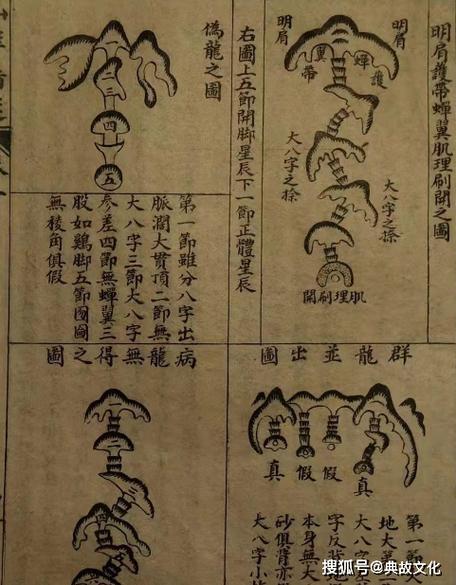 明肩護帶蟬翼肌理刷開之圖
明肩
明肩
護
蟬
翼
帶
大八字之捺
大八字之捺
肌理刷開
右圖上五節開脚星辰下一節正體星辰
偽龍之圖
四
五
第一節雖分八字出
脈濶大貫頂二節無
大八字三節大八字
參差四節無蟬翼三
股如鷄脚五節囫圇
無稜角俱假
群龍並出圖
真
假
假
真
第一節
地大第
大八字
字反背
本身無大
砂俱滑亦
大八字小
病龍無得之圖
一
二
四
搜狐号@典故文化